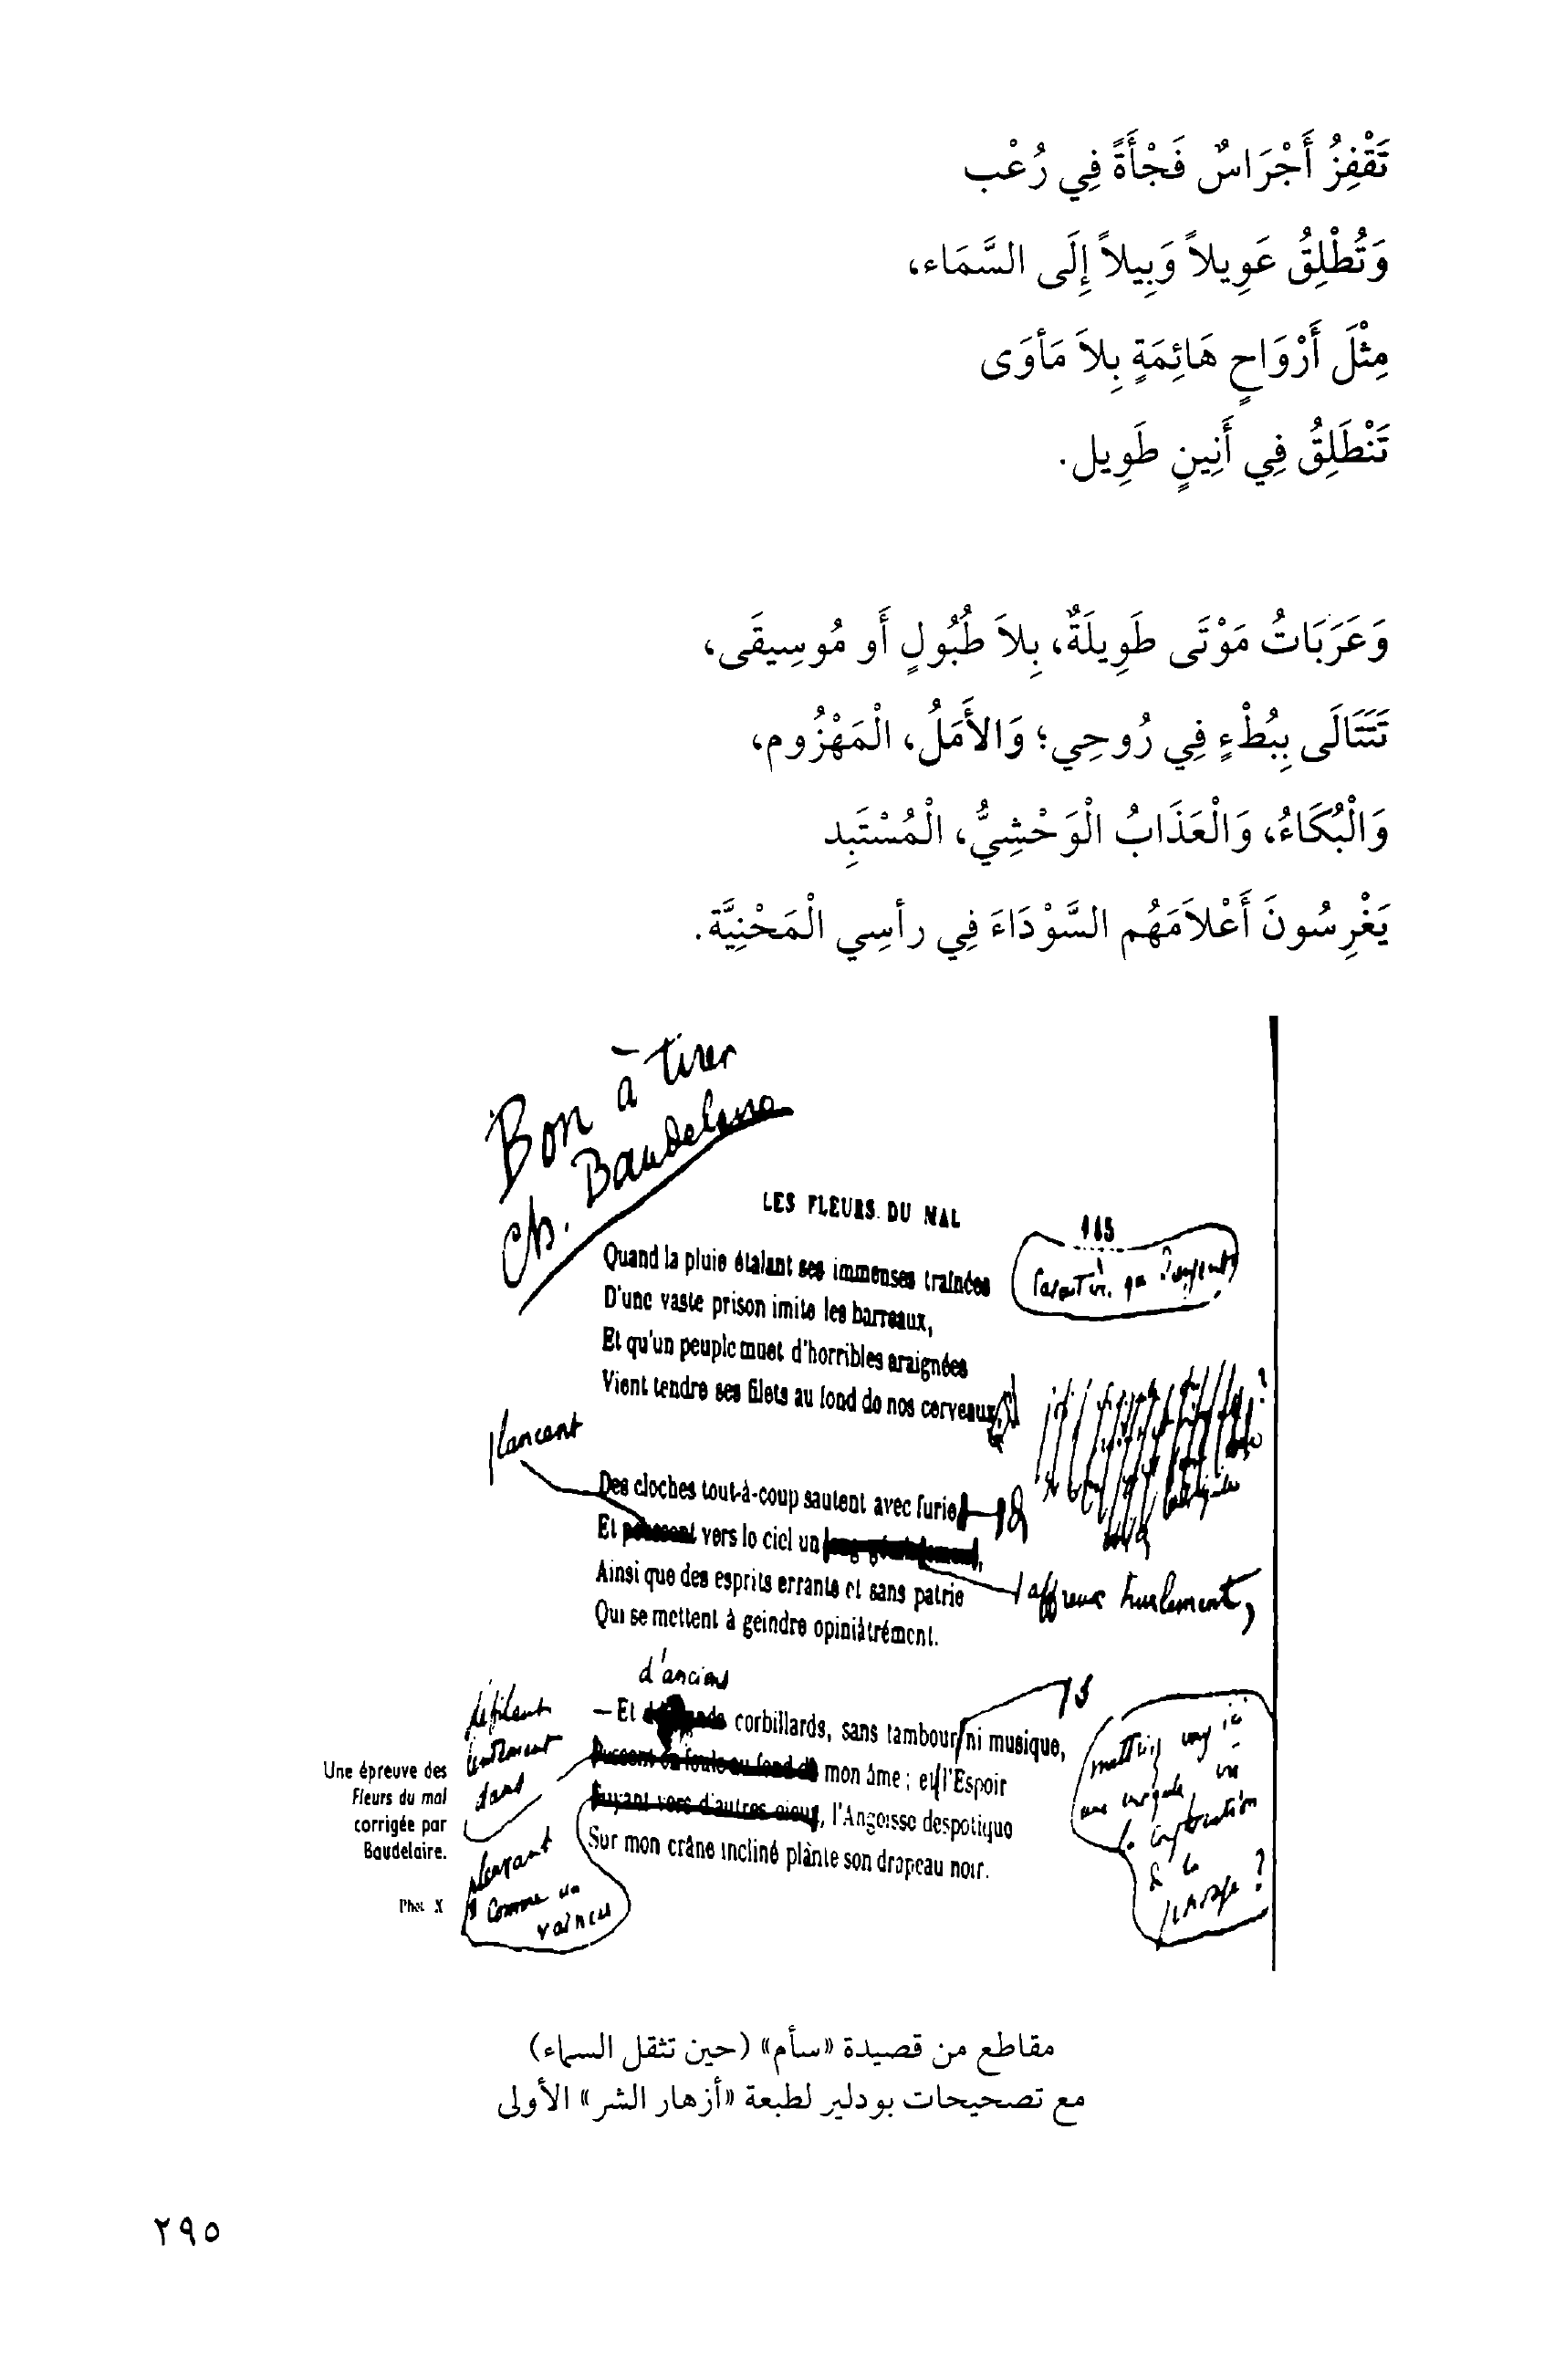 تَقْفِزُ أَجْرَاسٌ فَجْأَةً فِي رُعْب
وَتُطْلِقُ عَوِيلاً وَبِيلاً إِلَى السَّمَاء،
مِثْلَ أَرْوَاحٍ هَائِمَةٍ بِلاَ مَأوَى
تَنْطَلِقُ فِي أَنِينٍ طَوِيل.
وَعَرَبَاتُ مَوْتَى طَوِيلَةٌ، بِلاَ طُبُولٍ أَو مُوسِيقَى،
تَتَتَالَى بِبُطْءٍ فِي رُوحِي؛ وَالأَمَلُ، الْمَهْزُوم،
وَالْبُكَاءُ، وَالْعَذَابُ الْوَحْشِيُّ، الْمُسْتَبِد
يَغْرِسُونَ أَعْلاَمَهُم السَّوْدَاءَ فِي رأسِي الْمَحْنِيَّة.
Bon à tirer
Ch. Baudelaire
LES FLEURS DU MAL
145
Quand la pluie étalant ses immenses traînées
D'une vaste prison imite les barreaux,
Et qu'un peuple muet d'horribles araignées
Vient tendre ses filets au fond de nos cerveaux,
lancent
Des cloches tout-à-coup sautent avec furie
Et poussent vers le ciel un long gémissement,
affreux hurlement,
Ainsi que des esprits errants et sans patrie
Qui se mettent à geindre opiniâtrément.
d'anciens
— Et corbillards, sans tambour ni musique,
défilent
lentement
dans
Passent en foule au fond de mon âme ; et l'Espoir
Fuyant vers d'autres cieux, l'Angoisse despotique
Sur mon crâne incliné plante son drapeau noir.
pleurant
comme un
vaincu
Une épreuve des
Fleurs du mal
corrigée par
Baudelaire.
Phot. X
مقاطع من قصيدة «سأم» (حين تثقل السماء)
مع تصحيحات بودلير لطبعة «أزهار الشر» الأولى
٢٩٥